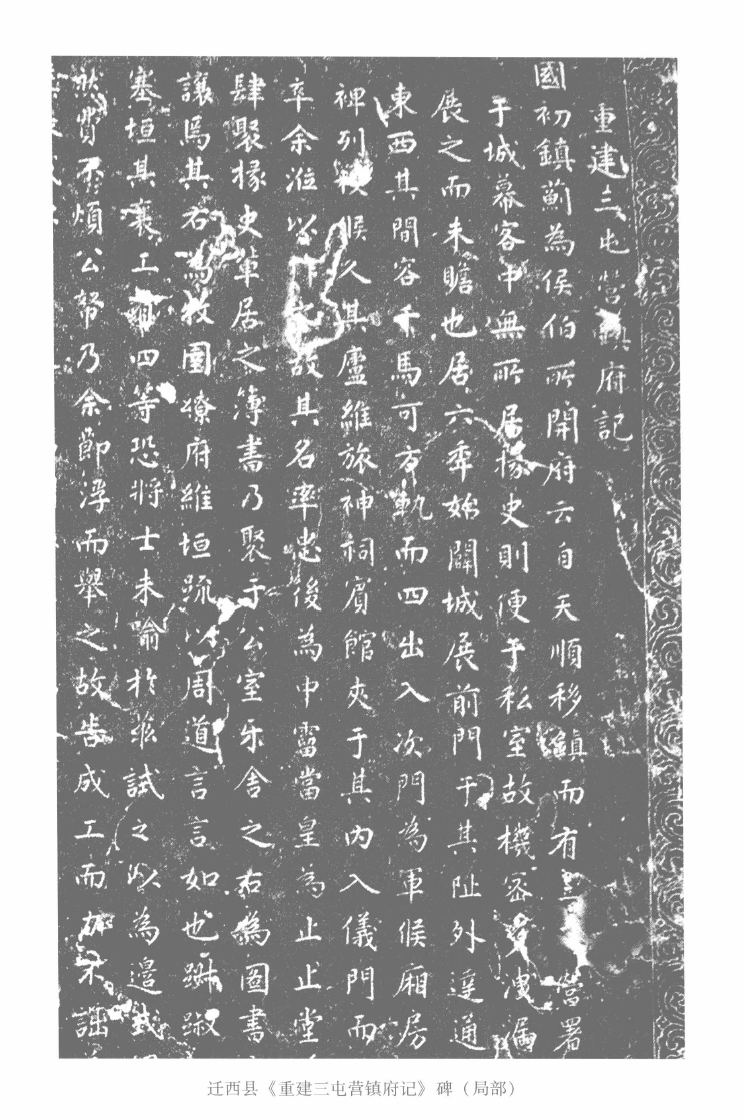 重建三屯营鎮府記
國初鎮薊為侯伯所開府云自天順移鎮而有三 營署
于城幕客中無所居掾史則便于私室故機密 洩漏
展之而未瞻也居六年始闢城展前門于其阯外達通
東西其間容千馬可方軌而四出入次門為軍候廂房
裨列 候久其廬維旅神祠賓館夾于其內入儀門而
卒余涖 故其名率忠後為中霤當皇為止止堂
肆聚掾史草居之簿書乃聚于公室乐舍之右為圖書
讓焉其右為牧圉繚府維垣疏以周道言言如也
塞垣其襄工 四等恐將士未喻於茲試之以為邊
然費不煩公帑乃余節浮而舉之故告成工而力不詘
迁西县《重建三屯营镇府记》碑（局部）